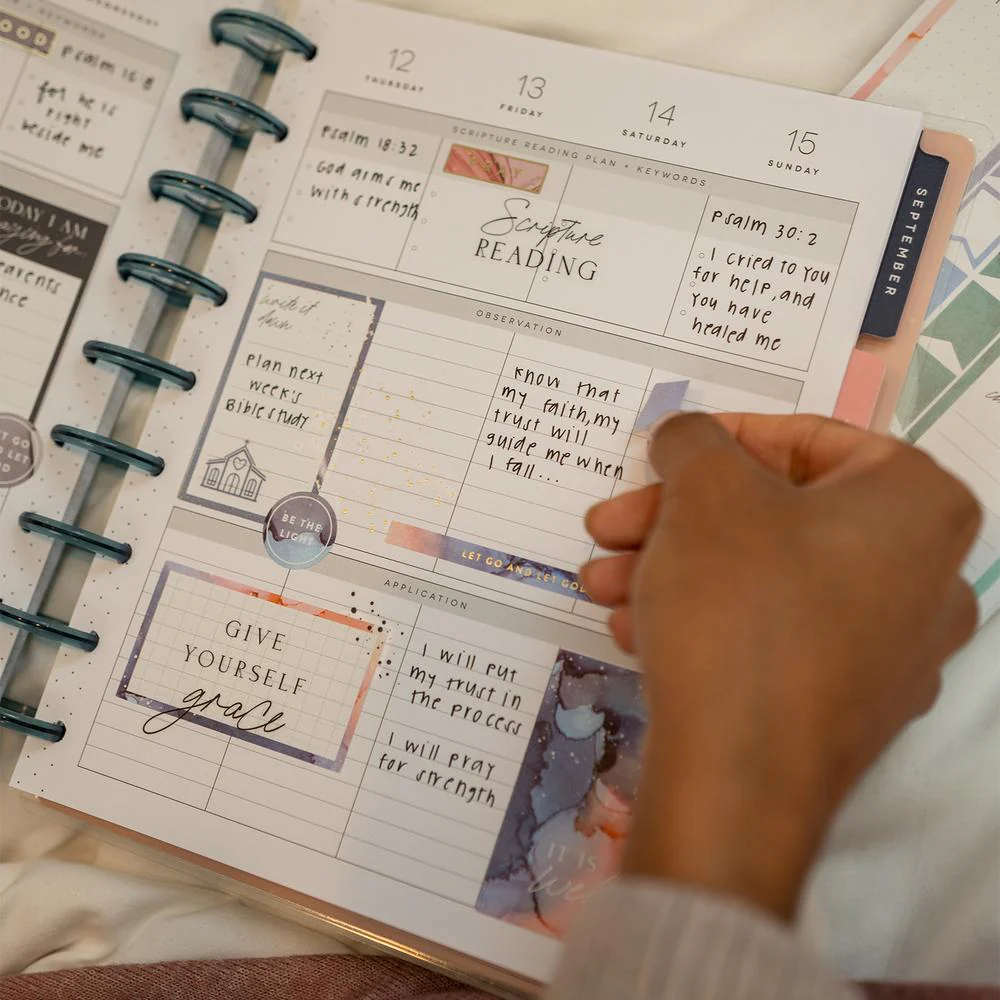 Psalm 16:8
for he is
right
beside me
TODAY I AM
praying for
12
THURSDAY
13
FRIDAY
14
SATURDAY
15
SUNDAY
SEPTEMBER
SCRIPTURE READING PLAN + KEYWORDS
Psalm 18:32
God arms me
with strength
Scripture
READING
Psalm 30:2
I cried to you
for help, and
you have
healed me
OBSERVATION
write it
down
Plan next
week's
Bible study
BE THE
LIGHT
know that
my faith, my
trust will
guide me when
I fall...
LET GO AND LET GOD
APPLICATION
GIVE
YOURSELF
grace
I will put
my trust in
the process
I will pray
for strength
IT IS